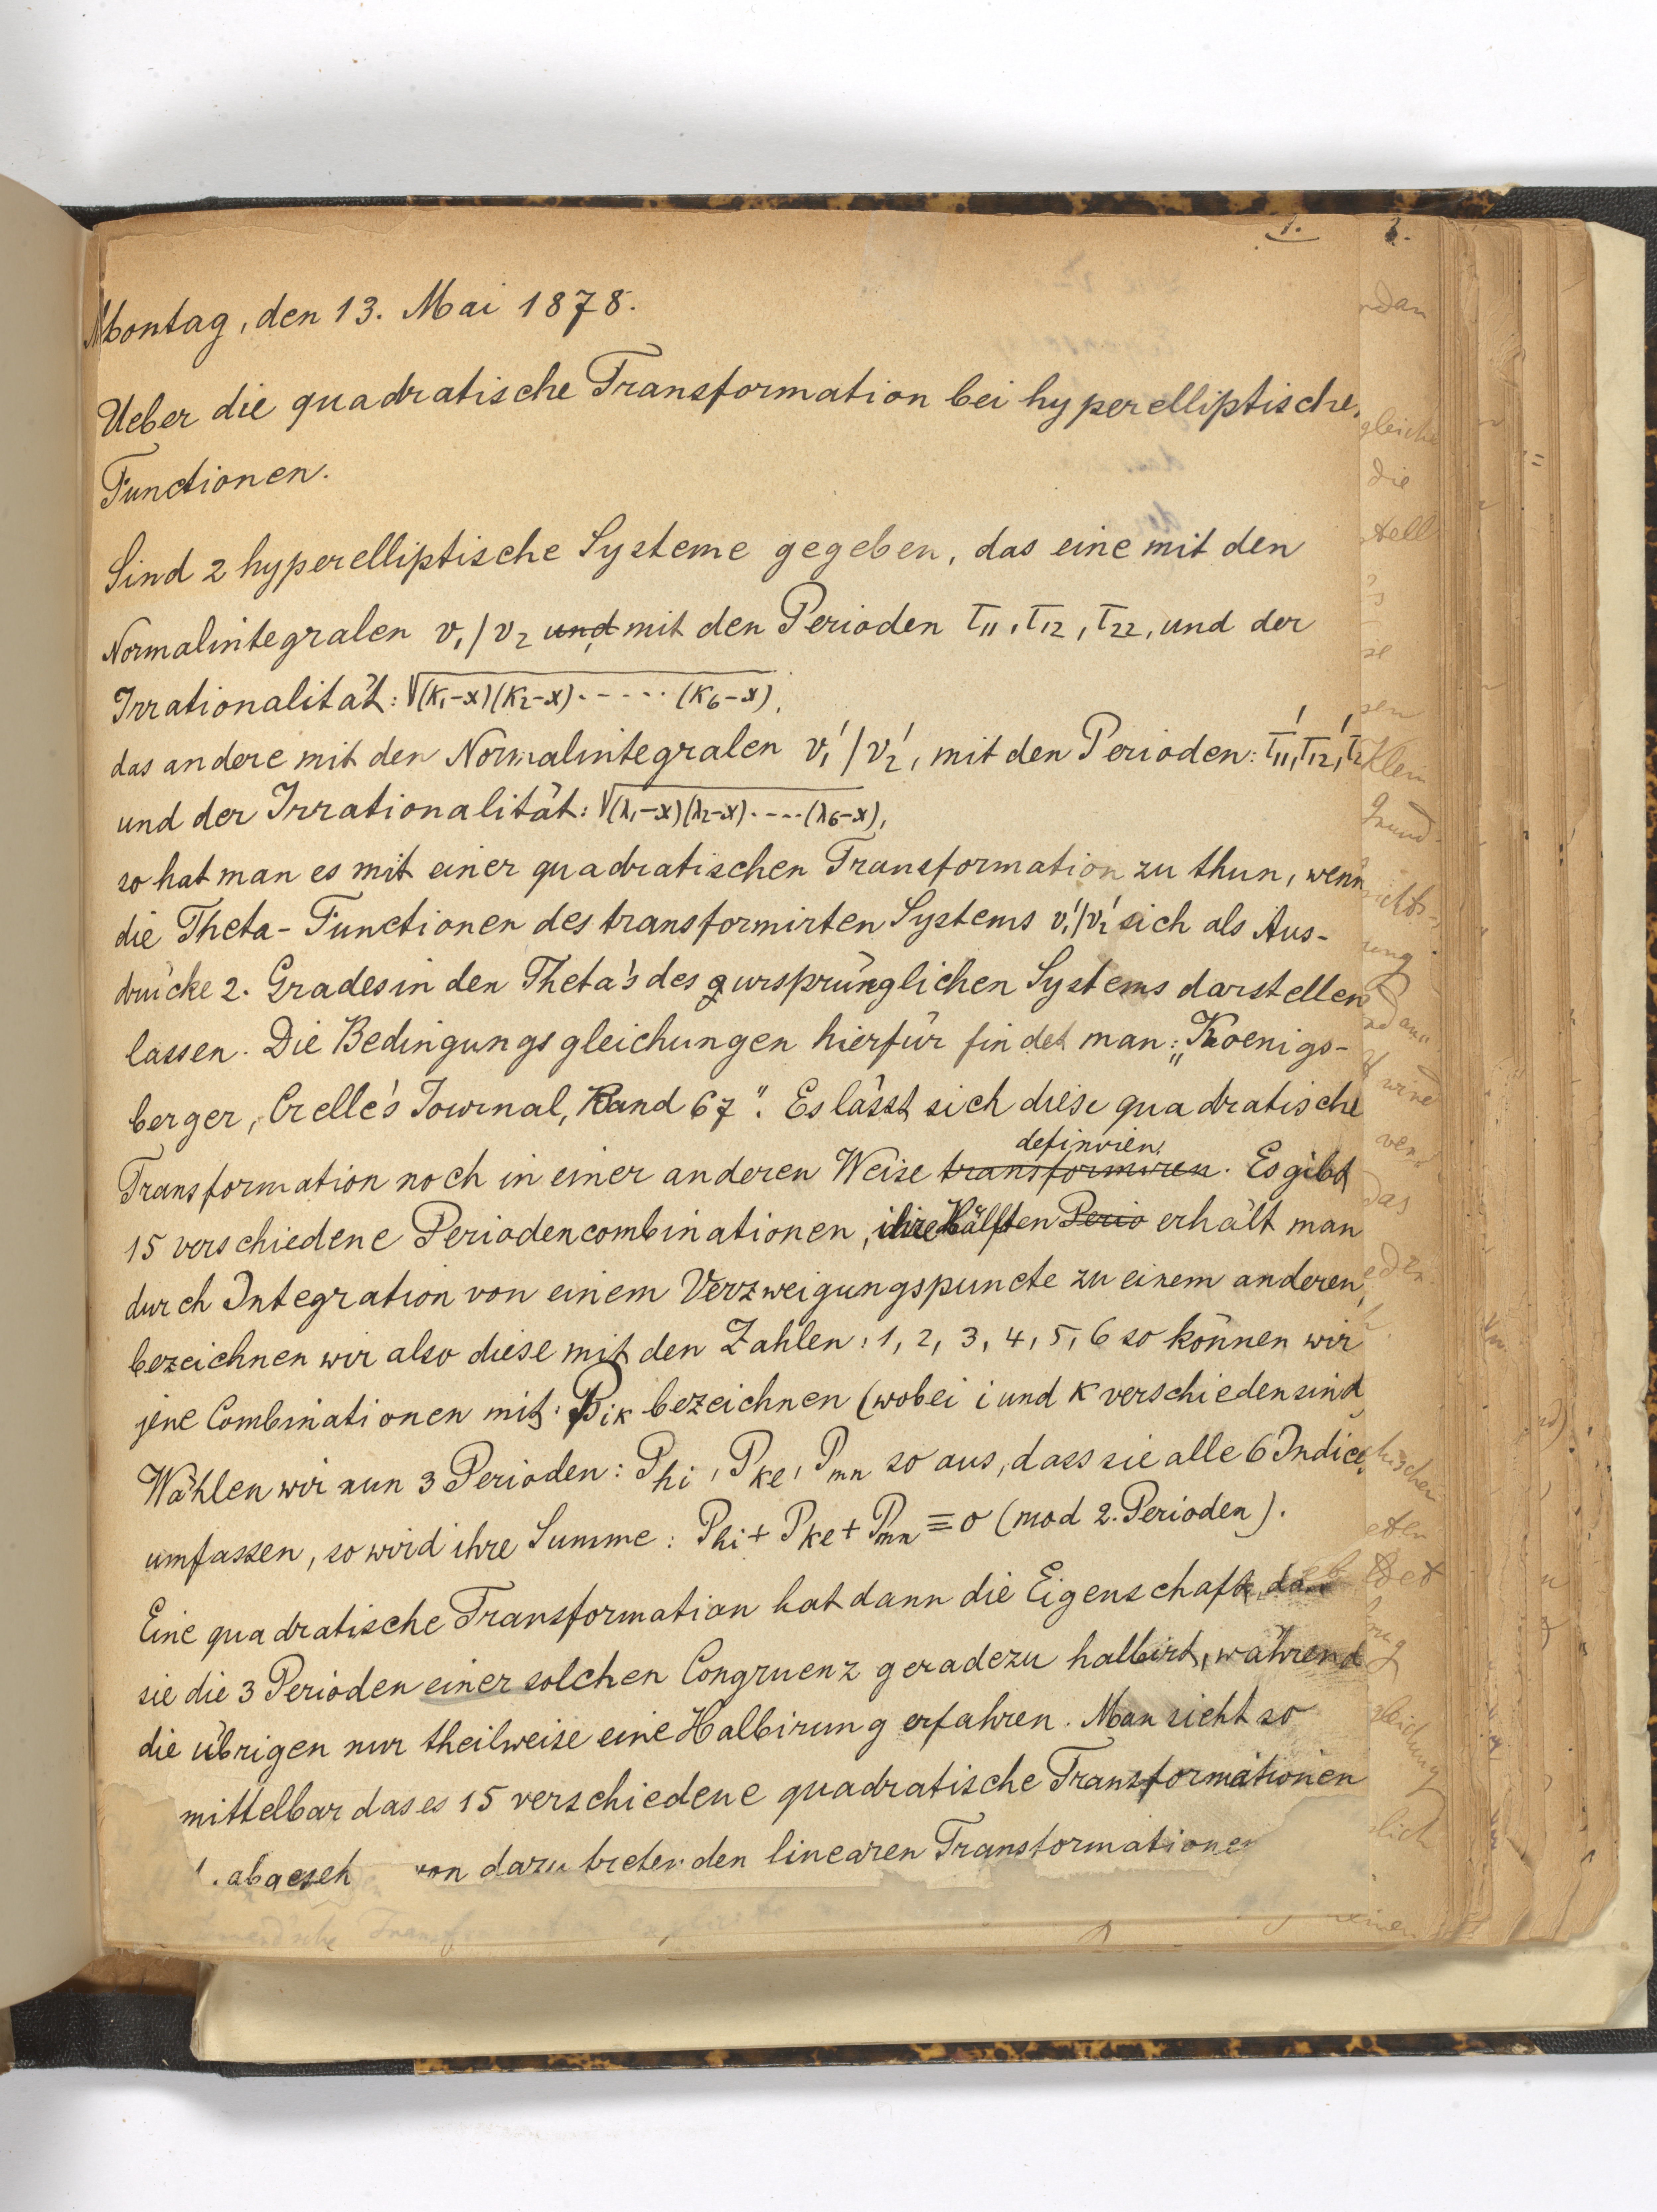 1.
Montag, den 13. Mai 1878.
Ueber die quadratische Transformation bei hyperelliptische
Functionen.
Sind 2 hyperelliptische Systeme gegeben, das eine mit den
Normalintegralen v₁/v₂ und, mit den Perioden τ₁₁, τ₁₂, τ₂₂, und der
Irrationalität: √(κ₁-x)(κ₂-x)·-----(κ₆-x),
das andere mit den Normalintegralen v₁'/v₂', mit den Perioden: τ₁₁', τ₁₂', τ₂
und der Irrationalität: √(λ₁-x)(λ₂-x)·----(λ₆-x),
so hat man es mit einer quadratischen Transformation zu thun, wenn
die Theta-Functionen des transformirten Systems v₁'/v₂' sich als Aus-
drücke 2. Grades in den Theta's des ursprünglichen Systems darstellen
lassen. Die Bedingungsgleichungen hierfür findet man: „Koenigs-
berger, Crelle's Journal, Band 67". Es lässt sich diese quadratische
definiren.
Transformation noch in einer anderen Weise transformiren. Es gibt
15 verschiedene Periodencombinationen, ihre Hälften Perio erhält man
durch Integration von einem Verzweigungspuncte zu einem anderen,
bezeichnen wir also diese mit den Zahlen: 1, 2, 3, 4, 5, 6 so können wir
jene Combinationen mit: Pᵢₖ bezeichnen (wobei i und κ verschieden sind
Wählen wir nun 3 Perioden: Pₕᵢ, Pₖₑ, Pₘₙ so aus, dass sie alle 6 Indices
umfassen, so wird ihre Summe: Pₕᵢ + Pₖₑ + Pₘₙ ≡ 0 (mod 2. Perioden).
Eine quadratische Transformation hat dann die Eigenschaft, das
sie die 3 Perioden einer solchen Congruenz geradezu halbirt, während
die übrigen nur theilweise eine Halbirung erfahren. Man sieht so
mittelbar das es 15 verschiedene quadratische Transformationen
abgeseh von dazu tretenden linearen Transformationen